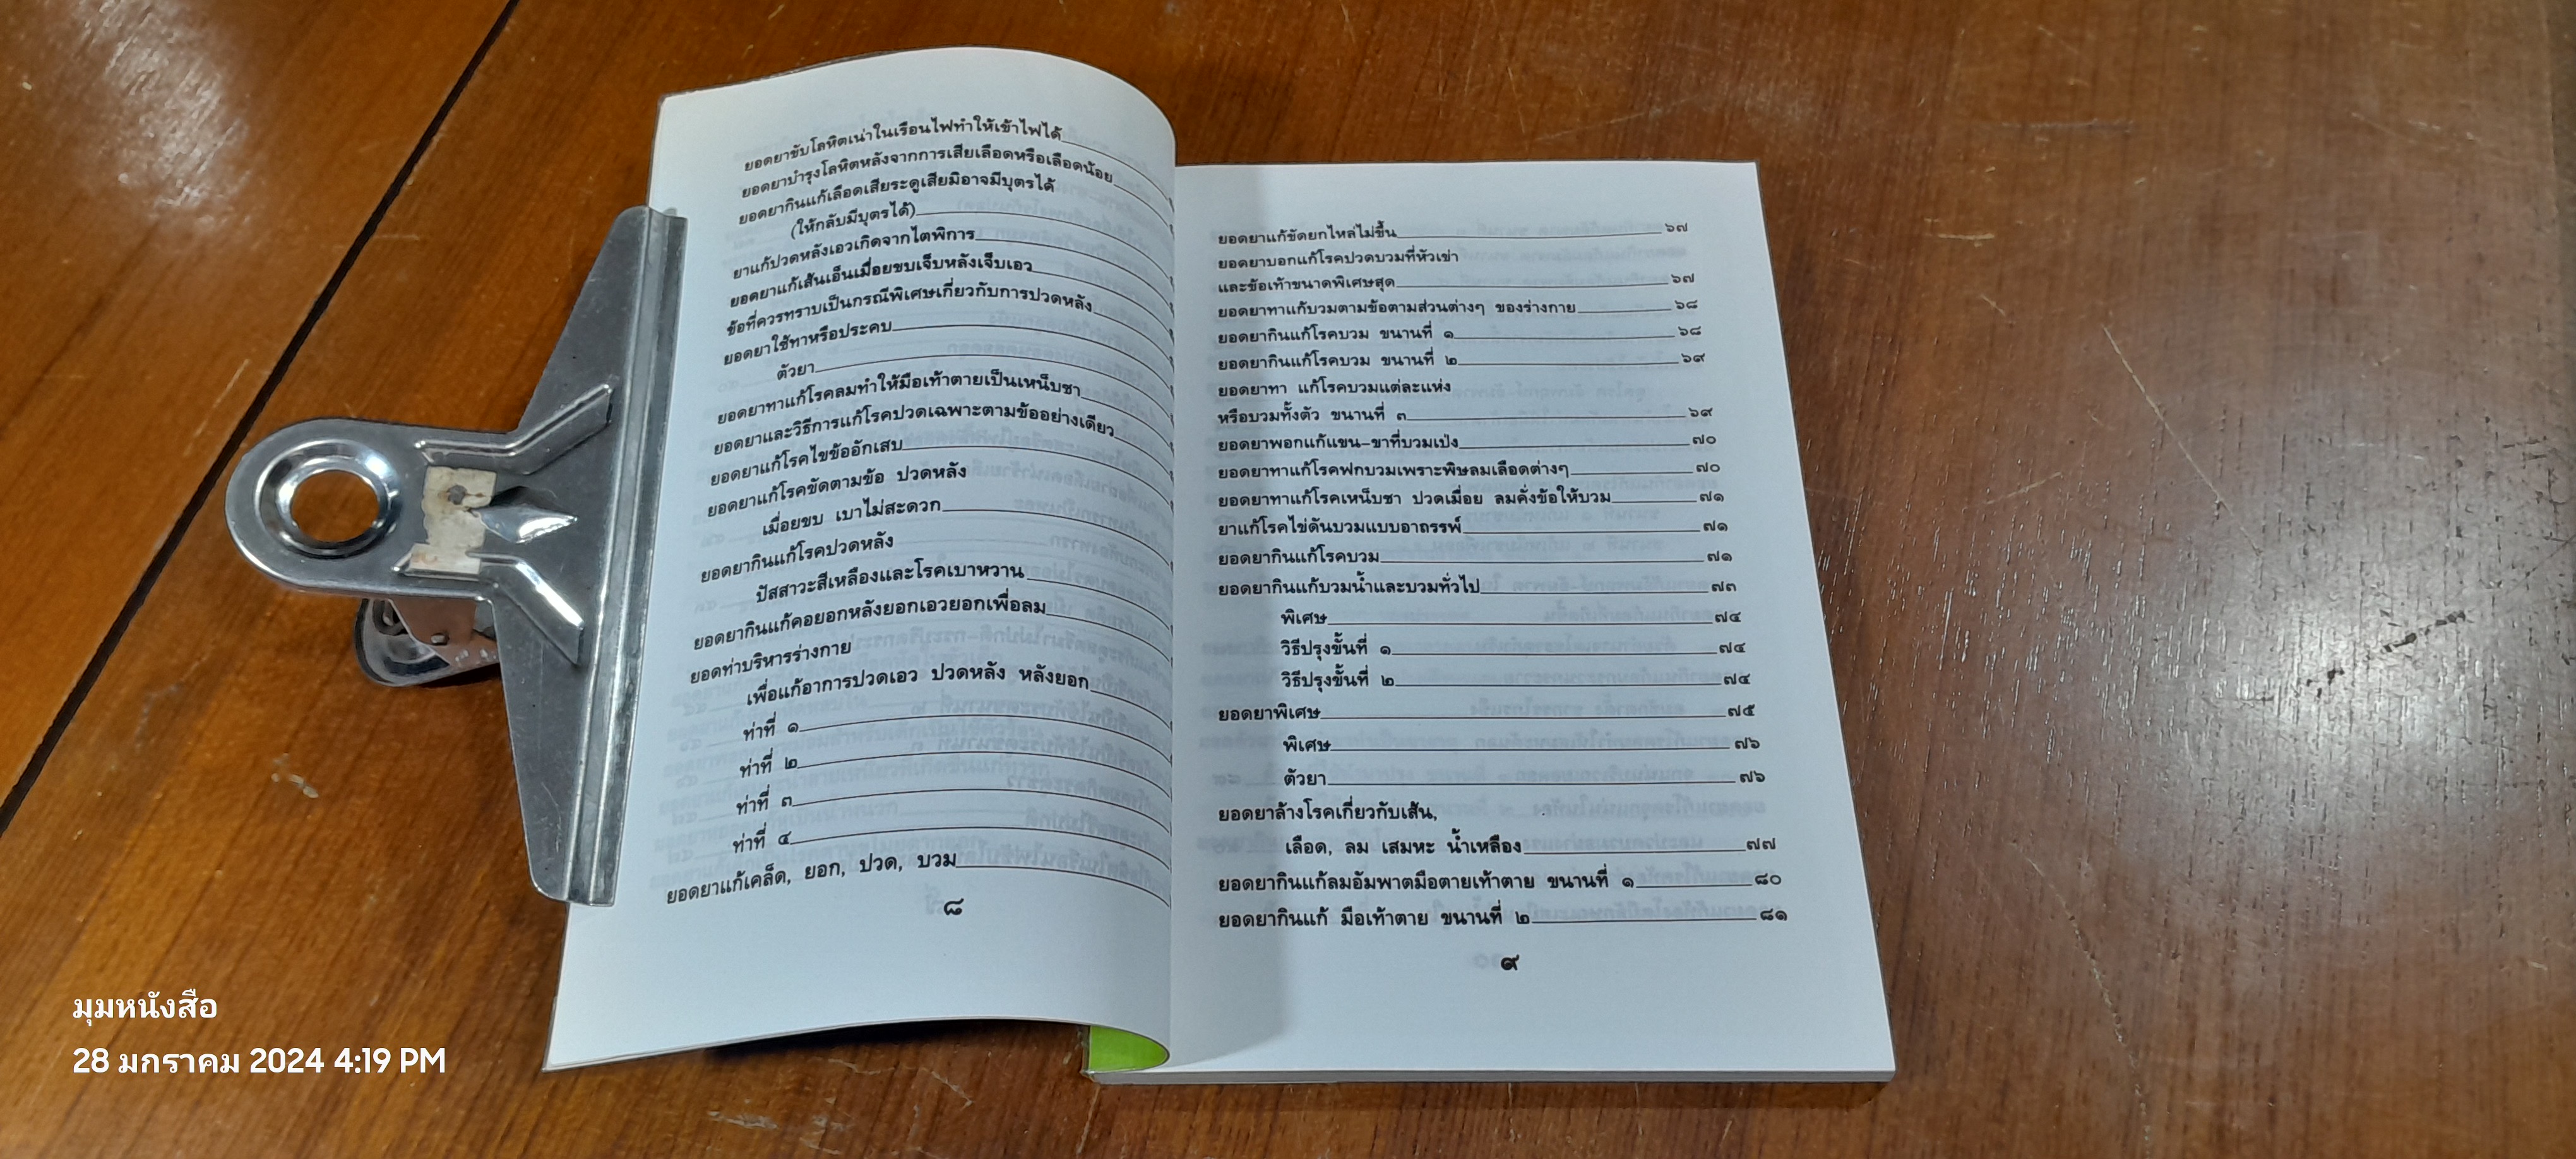 ยอดยาขับโลหิตเน่าในเรือนไฟทำให้เข้าไฟได้
ยอดยาบำรุงโลหิตหลังจากการเสียเลือดหรือเลือดน้อย
ยอดยากินแก้เลือดเสียระดูเสียมิอาจมีบุตรได้
(ให้กลับมีบุตรได้)
ยาแก้ปวดหลังเอวเกิดจากไตพิการ
ยอดยาแก้เส้นเอ็นเมื่อยขบเจ็บหลังเจ็บเอว
ข้อที่ควรทราบเป็นกรณีพิเศษเกี่ยวกับการปวดหลัง
ยอดยาใช้ทาหรือประคบ
ตัวยา
ยอดยาทาแก้โรคลมทำให้มือเท้าตายเป็นเหน็บชา
ยอดยาและวิธีการแก้โรคปวดเฉพาะตามข้ออย่างเดียว
ยอดยาแก้โรคไขข้ออักเสบ
ยอดยาแก้โรคขัดตามข้อ ปวดหลัง
เมื่อยขบ เบาไม่สะดวก
ยอดยากินแก้โรคปวดหลัง
ปัสสาวะสีเหลืองและโรคเบาหวาน
ยอดยากินแก้คอยอกหลังยอกเอวยอกเพื่อลม
ยอดท่าบริหารร่างกาย
เพื่อแก้อาการปวดเอว ปวดหลัง หลังยอก
ท่าที่ ๑
ท่าที่ ๒
ท่าที่ ๓
ท่าที่ ๔
ยอดยาแก้เคล็ด, ยอก, ปวด, บวม
๘
ยอดยาแก้ขัดยกไหล่ไม่ขึ้น ๖๗
ยอดยาบอกแก้โรคปวดบวมที่หัวเข่า
และข้อเท้าขนาดพิเศษสุด ๖๗
ยอดยาทาแก้บวมตามข้อตามส่วนต่างๆ ของร่างกาย ๖๘
ยอดยากินแก้โรคบวม ขนานที่ ๑ ๖๘
ยอดยากินแก้โรคบวม ขนานที่ ๒ ๖๙
ยอดยาทา แก้โรคบวมแต่ละแห่ง
หรือบวมทั้งตัว ขนานที่ ๓ ๖๙
ยอดยาพอกแก้แขน-ขาที่บวมเป่ง ๗๐
ยอดยาทาแก้โรคฟกบวมเพราะพิษลมเลือดต่างๆ ๗๐
ยอดยาทาแก้โรคเหน็บชา ปวดเมื่อย ลมคั่งข้อให้บวม ๗๑
ยาแก้โรคไข่ดันบวมแบบอาถรรพ์ ๗๑
ยอดยากินแก้โรคบวม ๗๑
ยอดยากินแก้บวมน้ำและบวมทั่วไป ๗๓
พิเศษ ๗๔
วิธีปรุงขั้นที่ ๑ ๗๔
วิธีปรุงขั้นที่ ๒ ๗๔
ยอดยาพิเศษ ๗๕
พิเศษ ๗๖
ตัวยา ๗๖
ยอดยาล้างโรคเกี่ยวกับเส้น,
เลือด, ลม เสมหะ น้ำเหลือง ๗๗
ยอดยากินแก้ลมอัมพาตมือตายเท้าตาย ขนานที่ ๑ ๘๐
ยอดยากินแก้ มือเท้าตาย ขนานที่ ๒ ๘๑
๙
มุมหนังสือ
28 มกราคม 2024 4:19 PM